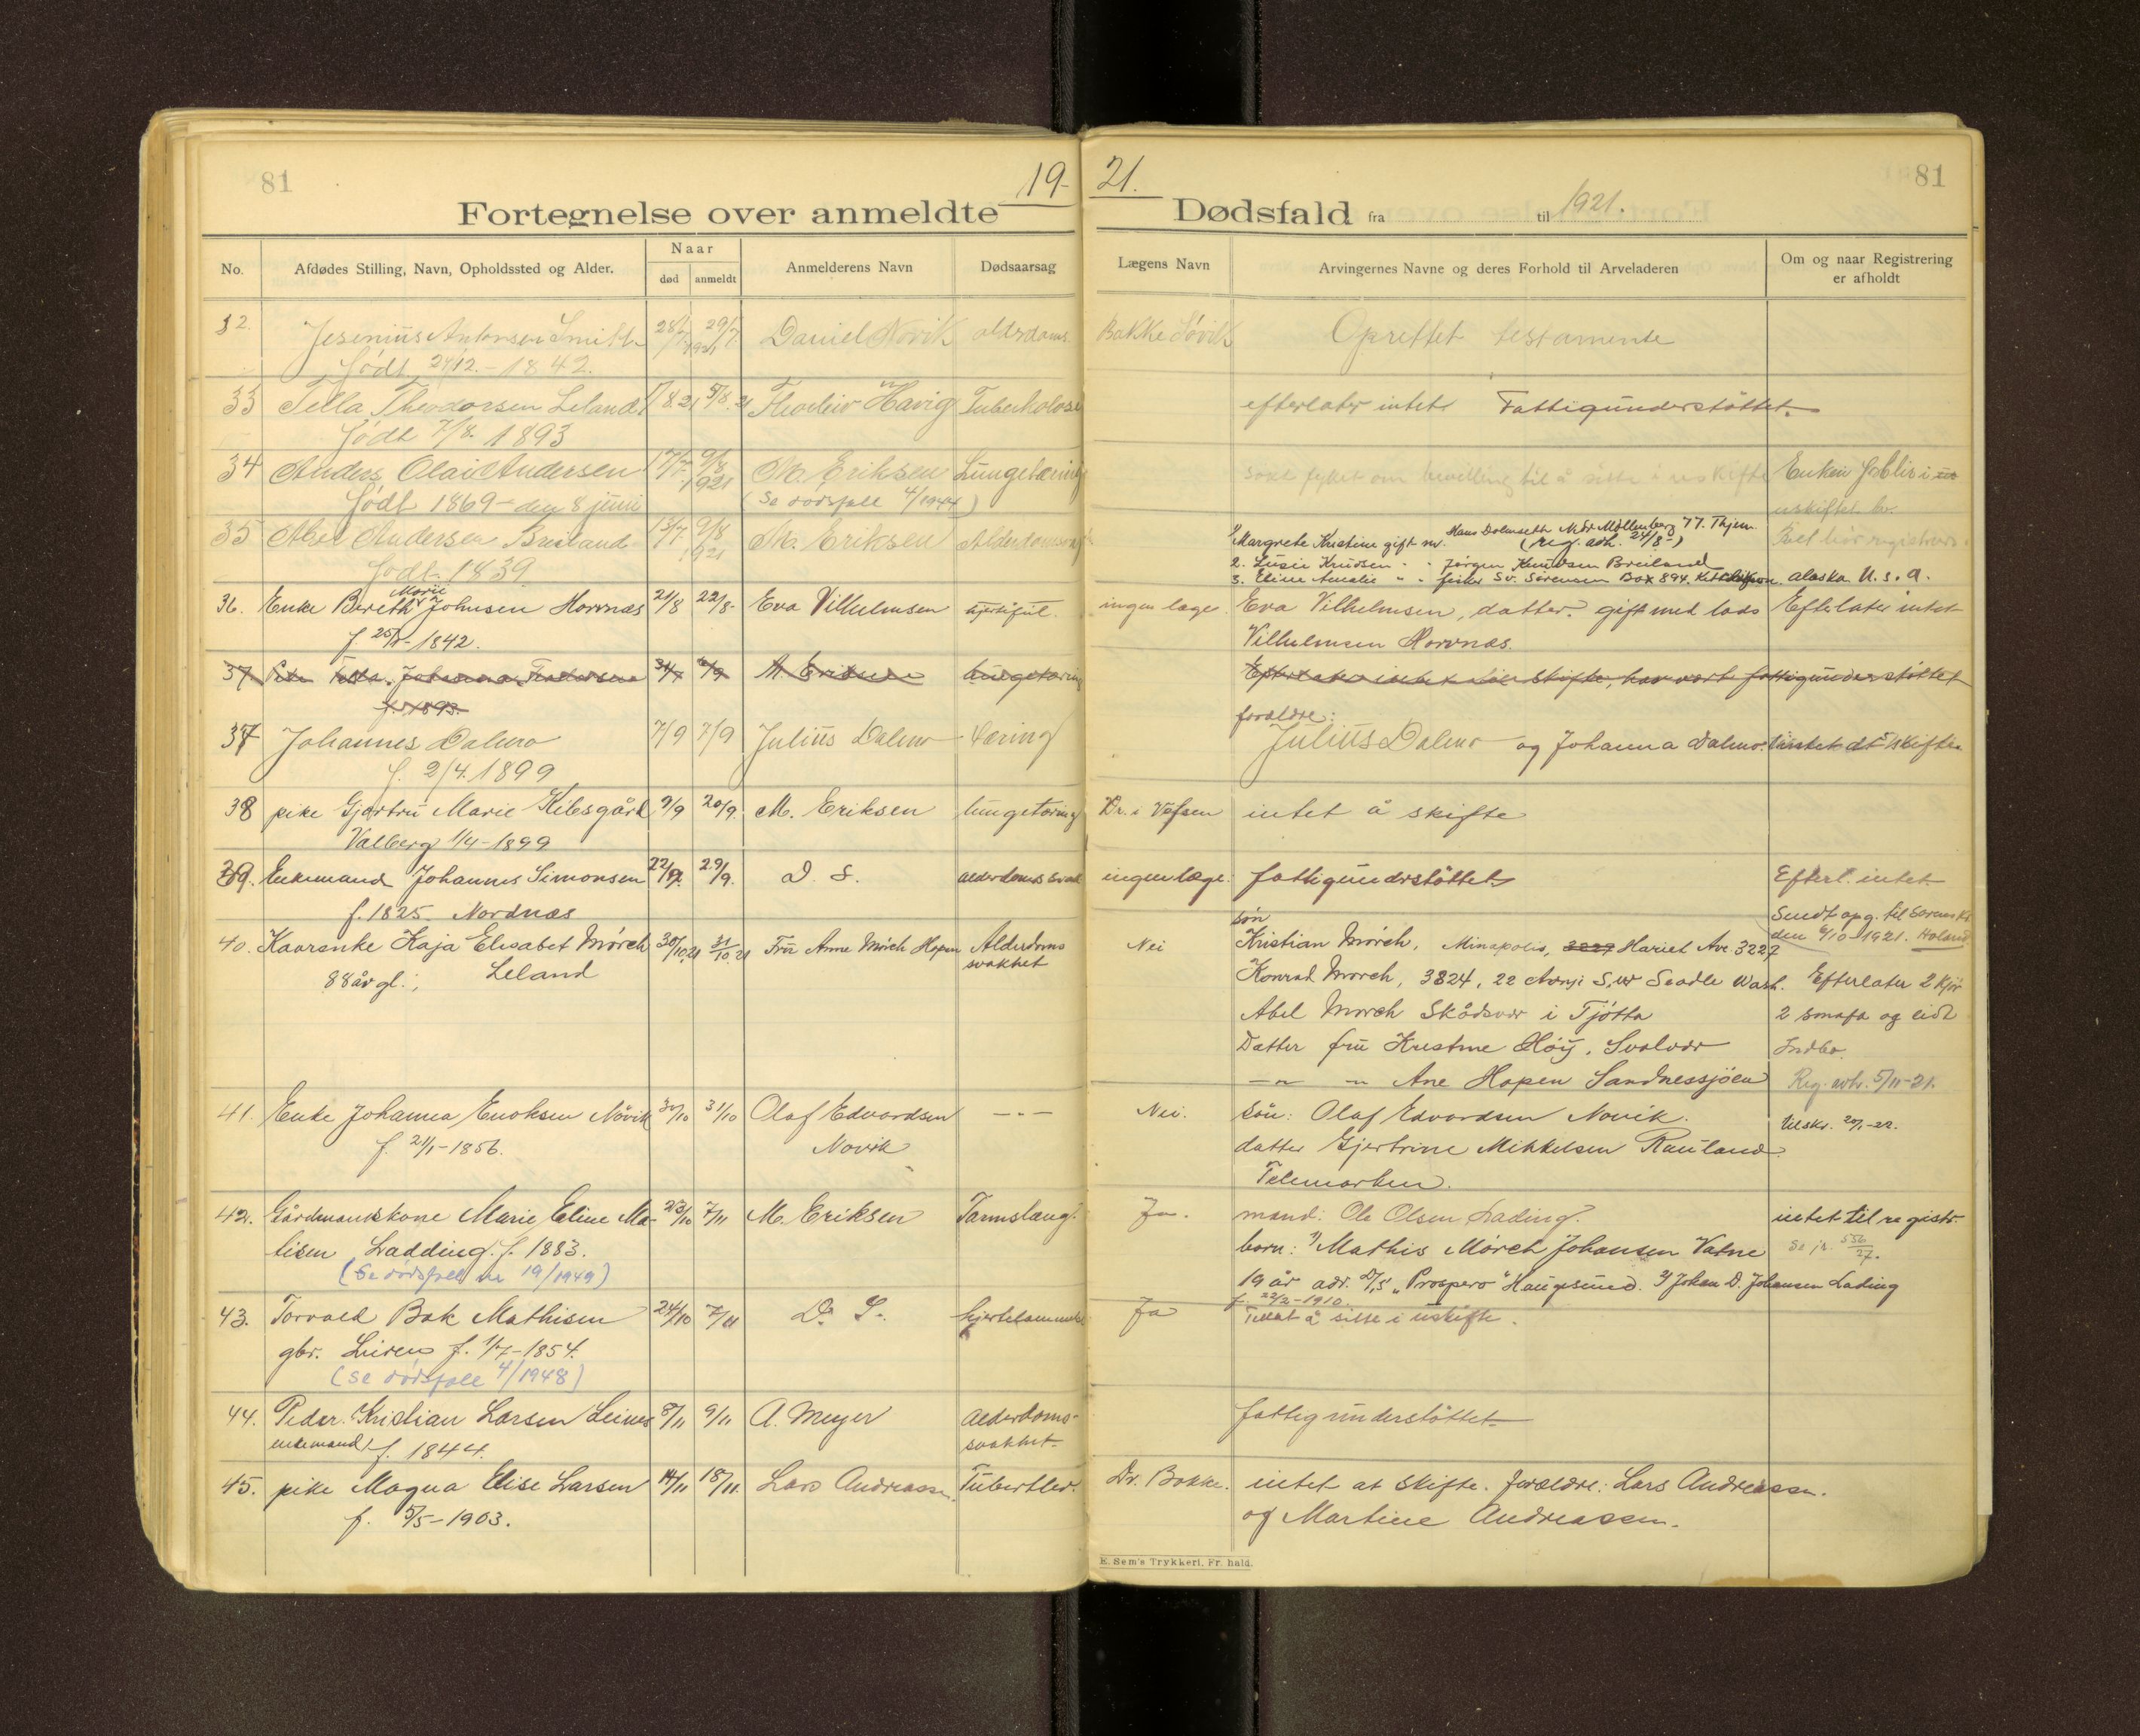 81
19-
21.
81
Fortegnelse over anmeldte Dødsfald fra til 1921.
No. Afdødes Stilling, Navn, Opholdssted og Alder. Naar død anmeldt Anmelderens Navn Dødsaarsag Lægens Navn Arvingernes Navne og deres Forhold til Arveladeren Om og naar Registrering er afholdt
32. Jesenius Antonsen Smith 28/7 29/7 1921 Daniel Novik alderdoms. Bakke Søvik Oprettet testamente
født 24/12.-1842.
33 Tella Theodorsen Leland 1/8.21 5/8.21 Thorleiv Havig Tuberkolose efterlater intet Fattigunderstøttet.
født 7/8. 1893
34 Anders Olai Andersen 17/7 9/8 1921 M. Eriksen Lungetæring søkt fylket om bevilling til å sitte i uskifte Enken forbliv i
født 1869 - den 8 juni (Se dødsfall 4/1944) uskiftet bo.
35 Abel Andersen Breiland 13/7 9/8 1921 M. Eriksen Alderdomssvag
født 1839
1/ Margrete Kristine gift m. Hans Dolmseth Ndr Møllenberg 77. Thjem. (reg. adh. 24/8-)
2. Lusie Knudsen " " Jørgen Knudsen Breiland
3. Eline Amalie " " fisker Sv. Sørensen Box 894. Ketchikan. Alaska U.S.A.
36. Enke Bereth Marie Johnsen Horvnæs 21/8 22/8- Eva Vilhelmsen hjertefeil. ingen læge Eva Vilhelmsen, datter. gift med lods Efterlater intet
f 25/ - 1842. Vilhelmsen Horvnæs.
37 Johanna 31/7 6/9 M. Eriksen lungetæring Efterlater intet skifte, har vært fattigunderstøttet
f. 1893.
37 Johannes Dalmo 7/9 7/9 Julius Dalmo tæring forældre: Julius Dalmo og Johanna Dalmo. intet at skifte
f. 2/4. 1899
38 pike Gjertru Marie Kilesgård 9/9 20/9. M. Eriksen lungetæring Dr. i Vefsen intet å skifte
Valberg 1/4-1899
39. Enkemand Johannes Simonsen 22/9. 29/9. D. S. alderdomssvak ingen læge. fattigunderstøttet Efterl. intet
f. 1825. Nordnæs
Sendt opg. til Sorensk. den 6/10-1921. Holand
40. Kaarenke Kaja Elisabet Mørch 30/10.21 31/10.21 Fru Anne Mørch Hopen Alderdoms svakhet Nei søn Kristian Mørch, Minapolis, 3227 Hariet Ave 3227
88 år gl. Leland
Konrad Mørch, 3824, 22 S.W Seadle Wash. Efterlater 2 kjør
Abel Mørch Skådsvær i Tjøtta 2 småfæ og lidt
Datter fru Kristine Høy, Svolvær Indbo.
-"- " Ane Hopen Sandnessjöen Reg. avh. 5/11-21.
41. Enke Johanna Enoksen Növik 30/10 31/10 Olaf Edvardsen -"- Nei. Søn: Olaf Edvardsen Novik. Utskr. 20/1-22.
f. 21/1-1856. Novik datter Gjertrine Mikkelsen Rauland
Telemarken.
42. Gårdmandskone Marie Eline Ma- 23/10 7/11 M. Eriksen Tarmslang. Ja. mand: Ole Olsen Lading. intet til registr.
tisen Ladding. f. 1883. born: 1/ Mathis Mörch Johansen Vatne Se jr. 556/27.
(Se dødsfall nr 19/1949) 19 år adr. D/S "Prospero" Haugesund. 2/ Johan D. Johansen Lading
f. 22/2-1910.
43. Torvald Bok Mathisen 24/10 7/11 D. S. hjertelammelse Ja Tillat å sitte i uskifte.
gbr. Leirens f. 1/7-1854.
(Se dødsfall 4/1948)
44. Peder Kristian Larsen Leines 8/11 9/11 A. Meyer Alderdoms- svakhet fattigunderstöttet
enkemand f. 1844.
45. pike Magna Elise Larsen 14/11 18/11. Lars Andreassen. Tubertler. Dr. Bakke. intet at skifte. forældre: Lars Andreassen.
f. 5/5-1903. og Martine Andreassen.
E. Sem's Trykkeri, Fr. hald.